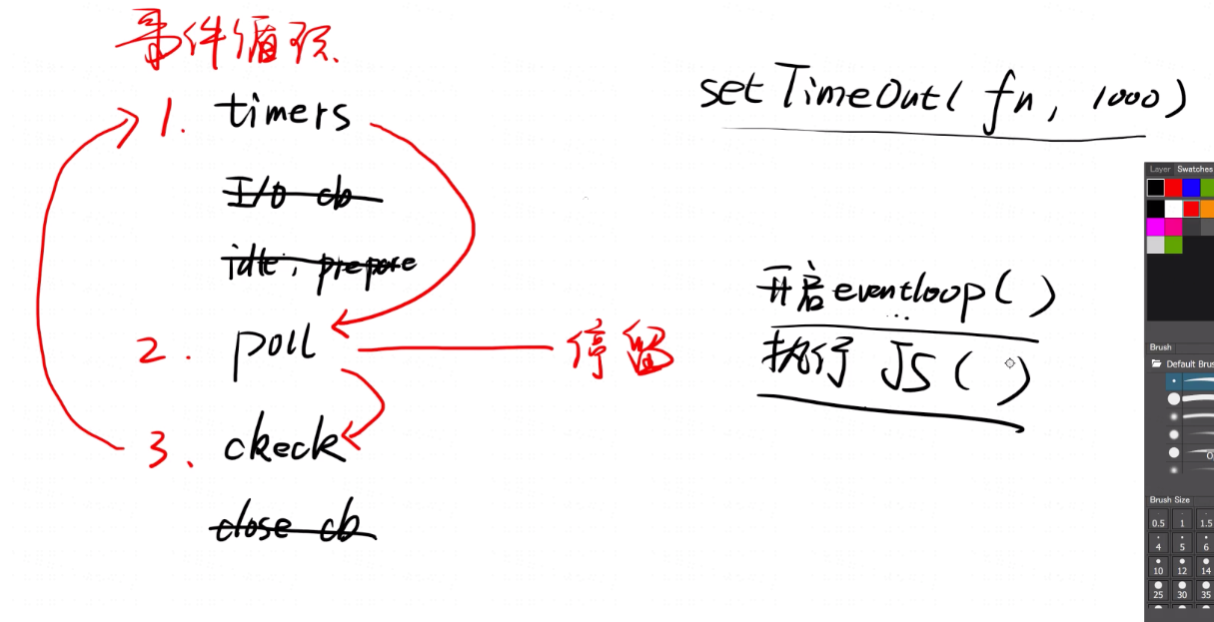 事件循环
1. timers
I/O cb
idle, prepare
2. poll
停留
3. ckeck
close cb
setTimeOut( fn, 1000 )
开启eventloop()
执行 JS ( )
Layer Swatches
Brush
Default Brus
Brush Size
0.5 1 1.5
4 5 6
10 12 14
25 30 35